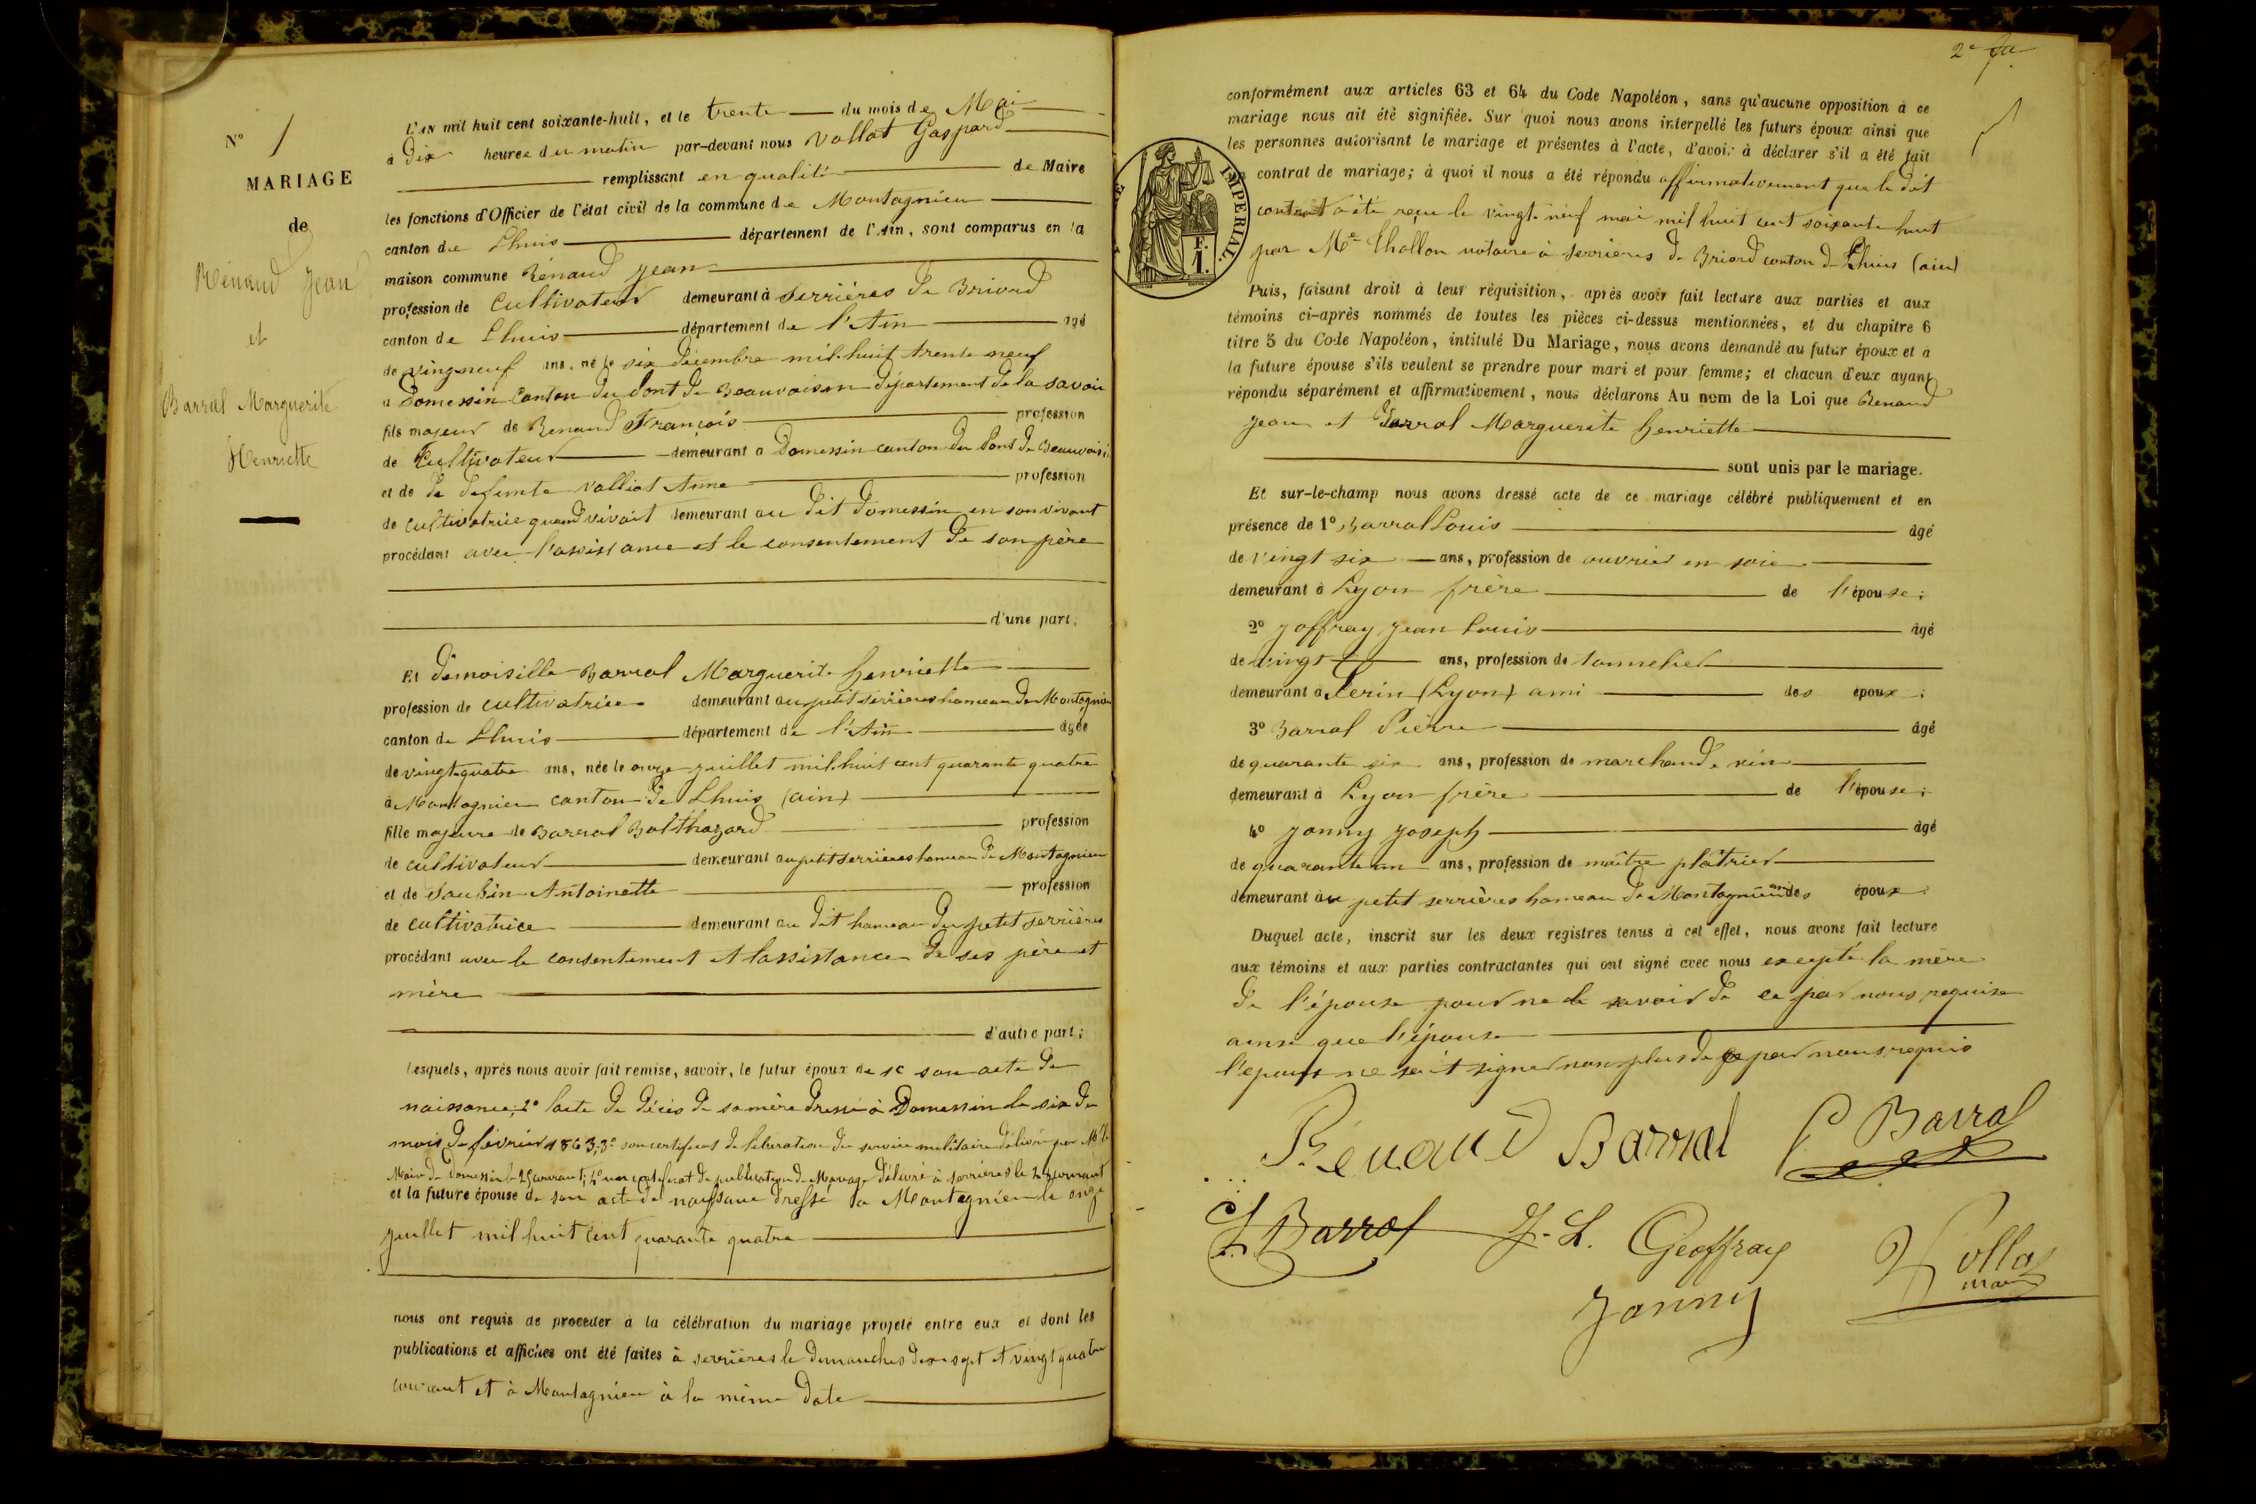 N° 1
MARIAGE
de
Rénaud Jean
et
Barral Marguerite
Henriette
L'AN mil huit cent soixante-huit, et le trente du mois de Mai
à dix heures du matin par-devant nous Vallat Gaspard
remplissant en qualité de Maire
les fonctions d'Officier de l'état civil de la commune de Montagnieu
canton de Lhuis département de l'Ain, sont comparus en la
maison commune Rénaud Jean
profession de Cultivateur demeurant à Serrières de Briord
canton de Lhuis département de l'Ain âgé
de vingneuf ans, né le six décembre mil huit trente neuf
à Domessin Canton du Pont de Beauvoison département de la Savoie
fils majeur de Renaud François profession
de Cultivateur demeurant à Domessin canton du Pont de Beauvoisi
et de de defunte Valliat Anne profession
de cultivatrice quand vivait demeurant au dit Domessin en son vivant
procédant avec l'assistance et le consentement de son père
d'une part;
Et demoiselle Barral Marguerite henriette
profession de cultivatrice demeurant au petit serrières hameau de Montagnieu
canton de Lhuis département de l'Ain âgée
de vingt quatre ans, née le onze juillet mil huit cent quarante quatre
à Montagnieu canton de Lhuis (ain)
fille majeure de Barral Balthazard profession
de cultivateur demeurant au petit serrières hameau de Montagnieu
et de Antoinette profession
de cultivatrice demeurant au dit hameau du petit serrières
procédant avec le consentement et lassistance de ses père et
mère
d'autre part;
Lesquels, après nous avoir fait remise, savoir, le futur époux de 1° son acte de
naissance, 2° lacte de décès de sa mère dressé à Domessin le six du
mois de février 1863, 3° son certificat de libération du service militaire délivré par Mr le
Maire de Domessin le 25 courant; 4° un certificat de publication de Mariage délivré à serrières le courant
et la future épouse de son acte de naissance dressé à Montagnieu le onze
juillet mil huit cent quarante quatre
nous ont requis de procéder à la célébration du mariage projeté entre eux et dont les
publications et affiches ont été faites à serrières le dimanches dix sept et vingt quatre
courant et à Montagnieu à la même date
2e
conformément aux articles 63 et 64 du Code Napoléon, sans qu'aucune opposition à ce
mariage nous ait été signifiée. Sur quoi nous avons interpellé les futurs époux ainsi que
les personnes autorisant le mariage et présentes à l'acte, d'avoir à déclarer s'il a été fait
contrat de mariage; à quoi il nous a été répondu affirmativement que le dit
contrat à été reçu le vingt neuf mai mil huit cent soixante huit
par Me Chollon notaire à serrières de Briord canton de Lhuis (ain)
IMPERIAL.
F.
1.
Puis, faisant droit à leur réquisition, après avoir fait lecture aux parties et aux
témoins ci-après nommés de toutes les pièces ci-dessus mentionnées, et du chapitre 6
titre 5 du Code Napoléon, intitulé Du Mariage, nous avons demandé au futur époux et à
la future épouse s'ils veulent se prendre pour mari et pour femme; et chacun d'eux ayant
répondu séparément et affirmativement, nous déclarons Au nom de la Loi que Renaud
Jean et Barral Marguerite henriette
sont unis par le mariage.
Et sur-le-champ nous avons dressé acte de ce mariage célébré publiquement et en
présence de 1° Barral Louis âgé
de vingt six ans, profession de ouvrier en soie
demeurant à Lyon frère de l'épouse;
2° Joffray Jean Louis âgé
de vingt ans, profession de tonnelier
demeurant à (Lyon) ami des époux;
3° Barral Pierre âgé
de quarante six ans, profession de marchand de vin
demeurant à Lyon frère de l'épouse;
4° Janny Joseph âgé
de quarante un ans, profession de maître plâtrier
demeurant au petit serrières hameau de Montagnieu ami des époux
Duquel acte, inscrit sur les deux registres tenus à cet effet, nous avons fait lecture
aux témoins et aux parties contractantes qui ont signé avec nous excepté la mère
de l'épouse pour ne le savoir de ce par nous requise
ainsi que l'épouse
l'epouse ne sait signer non plus de ce par nous requis
Rénaud Barral P Barral
L Barral J. L. Geoffray Vallat
maire
Janny